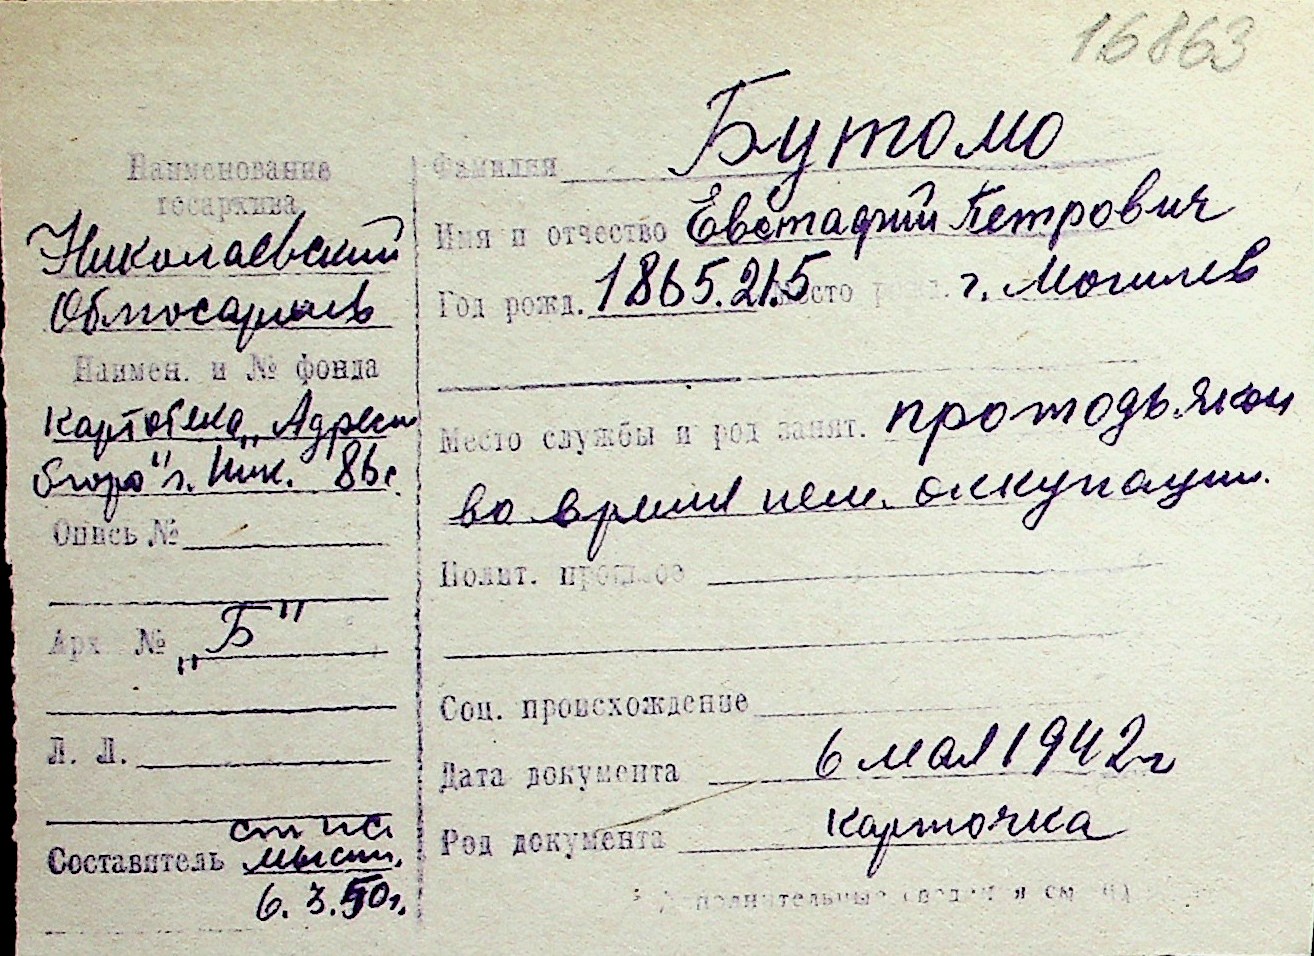 16863
Наименование
госархива
Николаевский
Облгосархив
Наимен. и № фонда
картотека „Адресн
бюро" г. Ник.
Опись №
Арх №
„Б"
Л. Л.
Составитель
6. 3. 50г.
Фамилия Бутомо
Имя и отчество Евстафий Петрович
Год рожд. 1865.21.5 Место рожд. г. Могилев
Место службы и род занят. протодьякон
во время нем. оккупации.
Полит. прошлое
Соц. происхождение
Дата документа 6 мая 1942 г
Род документа карточка
Дополнительные сведения см